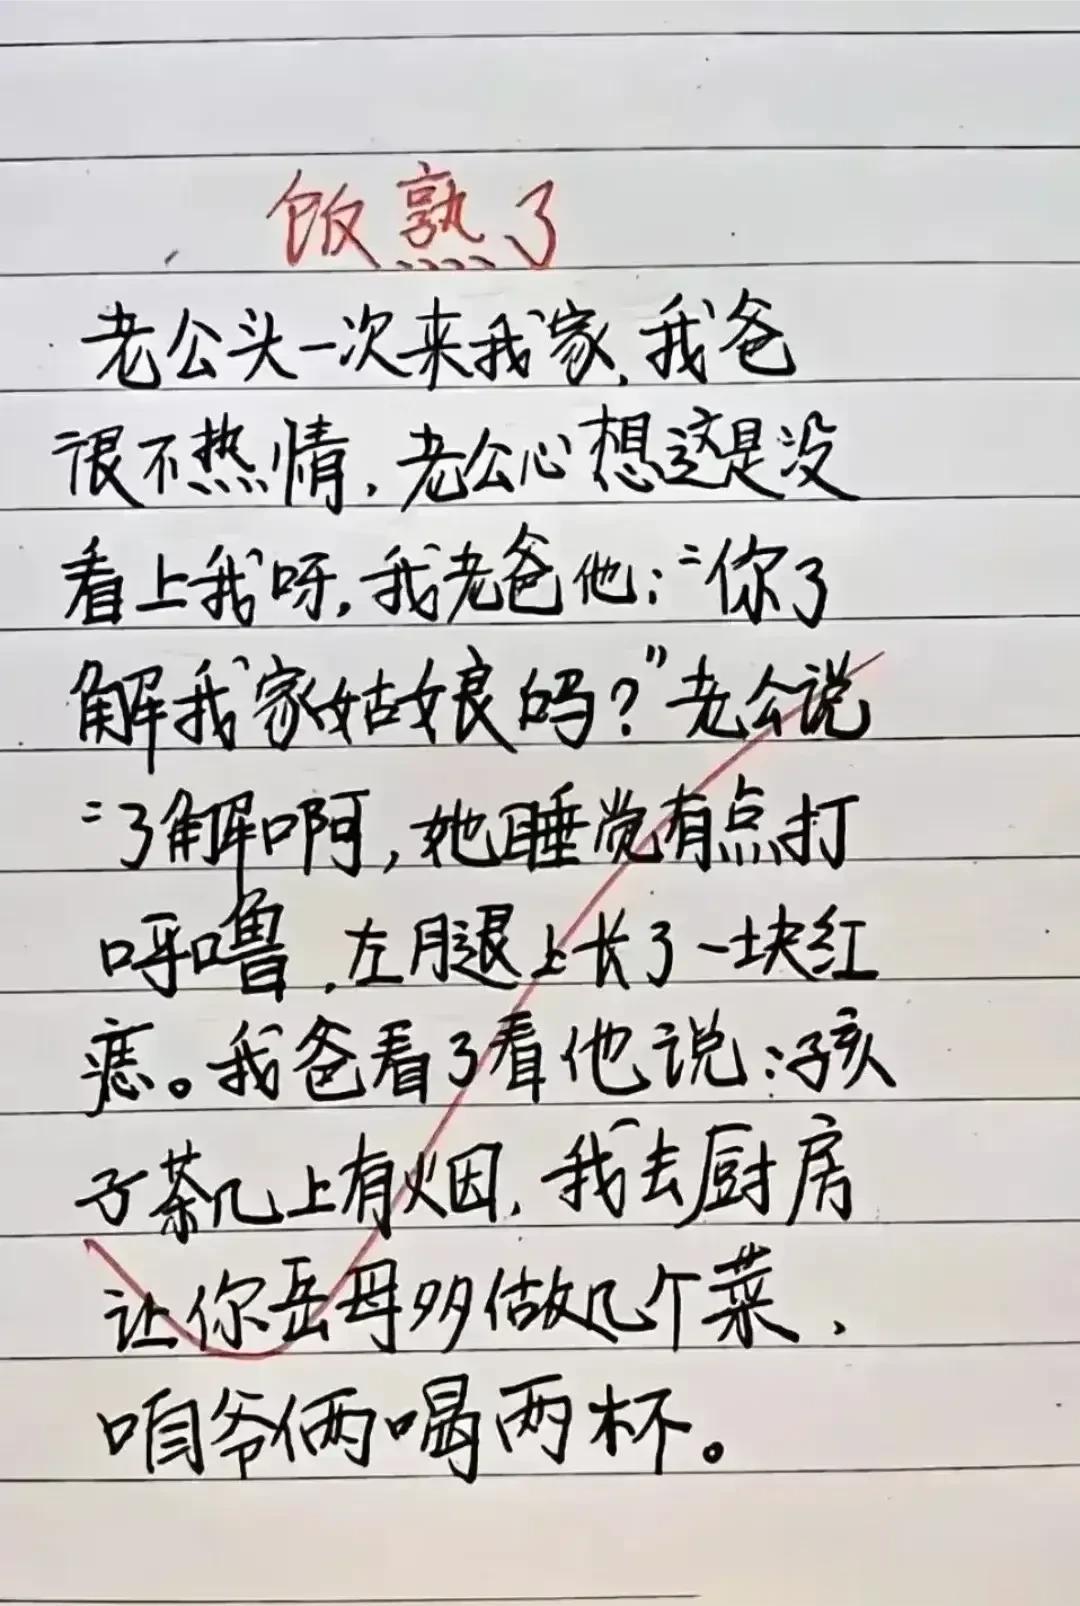 饭熟了
老公头一次来我家,我爸
很不热情,老公心想这是没
看上我呀,我老爸他:“你了
解我家姑娘吗?”老公说
“了解啊,她睡觉有点打
呼噜,左腿上长了一块红
痣。我爸看了看他说:孩
子茶几上有烟,我去厨房
让你岳母多做几个菜,
咱爷俩喝两杯。